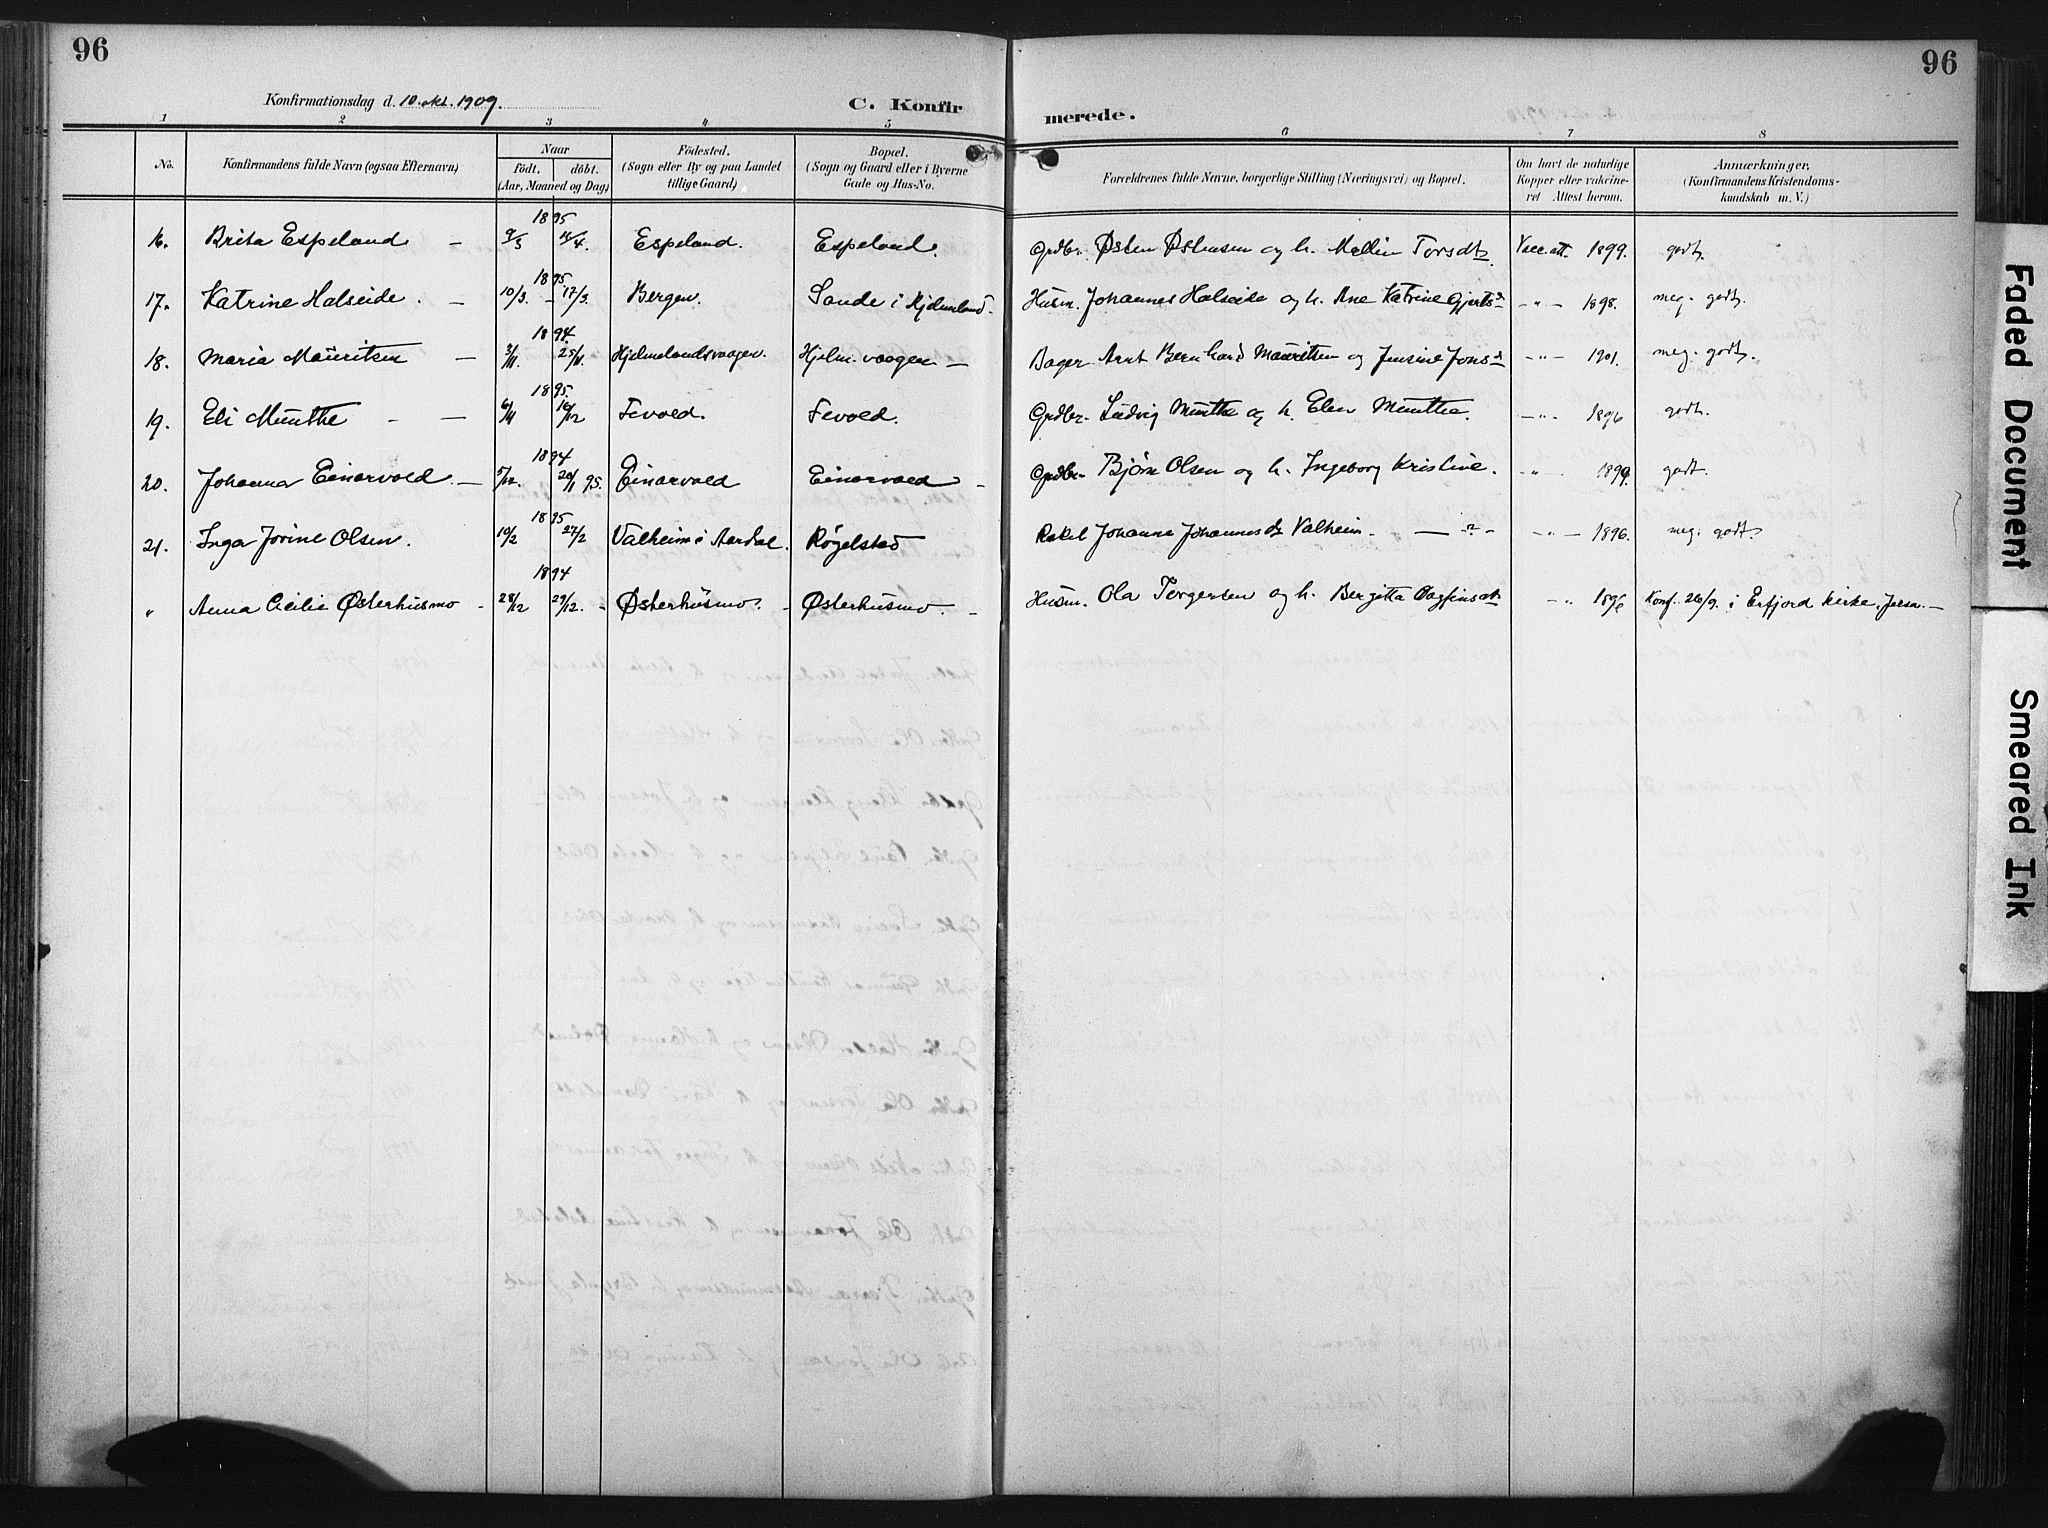 96
96
Konfirmationsdag d. 10. okt. 1909.
C. Konfirmerede.
1 2 3 4 5 6 7 8
No. Konfirmandens fulde Navn (ogsaa Efternavn) Naar født. døbt. (Aar, Maaned og Dag) Födested. (Sogn eller By og paa Landet tillige Gaard) Bopæl. (Sogn og Gaard eller i Byerne Gade og Hus-No. Forældrenes fulde Navne, borgerlige Stilling (Næringsvei) og Bopæl. Om havt de naturlige Kopper eller vakcineret Attest herom. Anmærkninger. (Konfirmandens Kristendomskundskab m. V.)
1895
16. Brita Espeland – 9/3 15/4. Espeland. Espeland. Grdbr. Østen Østensen og h. Mallin Torsdtr. Vacc. att. 1899. godt.
1895
17. Katrine Halseide. – 10/3. – 17/3. Bergen. Sande i Hjelmeland. Husm. Johannes Halseide og h. Ane Katrine Gjertsd – " – 1898. meg. godt.
1894.
18. Maria Mauritsen – 3/11. 25/11. Hjelmelandsvaagen. Hjelm. vaagen – Bager Arnt Bernhard Mauritsen og Jensine Jonsd – " – 1901. meg. godt.
1895.
19. Eli Munthe – – 6/11 16/12 Fevold. Fevold. Grdbr. Ludvig Munthe og h. Elen Munthe. – " – 1896 godt.
1894
20. Johanna Einarvold. – 5/12. 20/1 95. Einarvold Einarvold – Grdbr. Bjørn Olsen og h. Ingeborg Kristine. " – 1899. godt.
1895
21. Inga Jorine Olsen. 10/2 27/2 Valheim i Aardal. Røgelstad Rakel Johanne Johannesdtr. Valheim. – ? – – " – 1896. meg. godt.
1894
" Anna Cecilie Østerhusmo – 28/12 29/12. – Østerhusmo. – Østerhusmo. – Husm. Ola Torgersen og h. Bergitta Dagfinsdtr – " 1896 Konf. 26/9. i Erfjord kirke, Jelsa. –
Faded Document
Smeared Ink